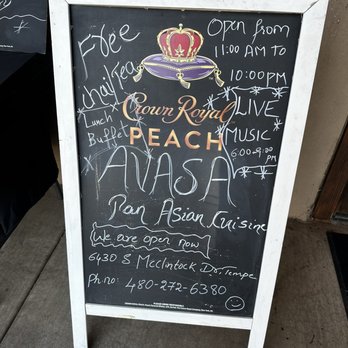 Free
chai/Tea
Lunch
Buffet
Open from
11:00 AM TO
10:00 PM
LIVE
MUSIC
6:00-9:00
PM
Crown Royal
PEACH
AVASA
Pan Asian Cuisine
We are open now
6430 S Mcclintock Dr, Tempe
Ph no: 480-272-6380